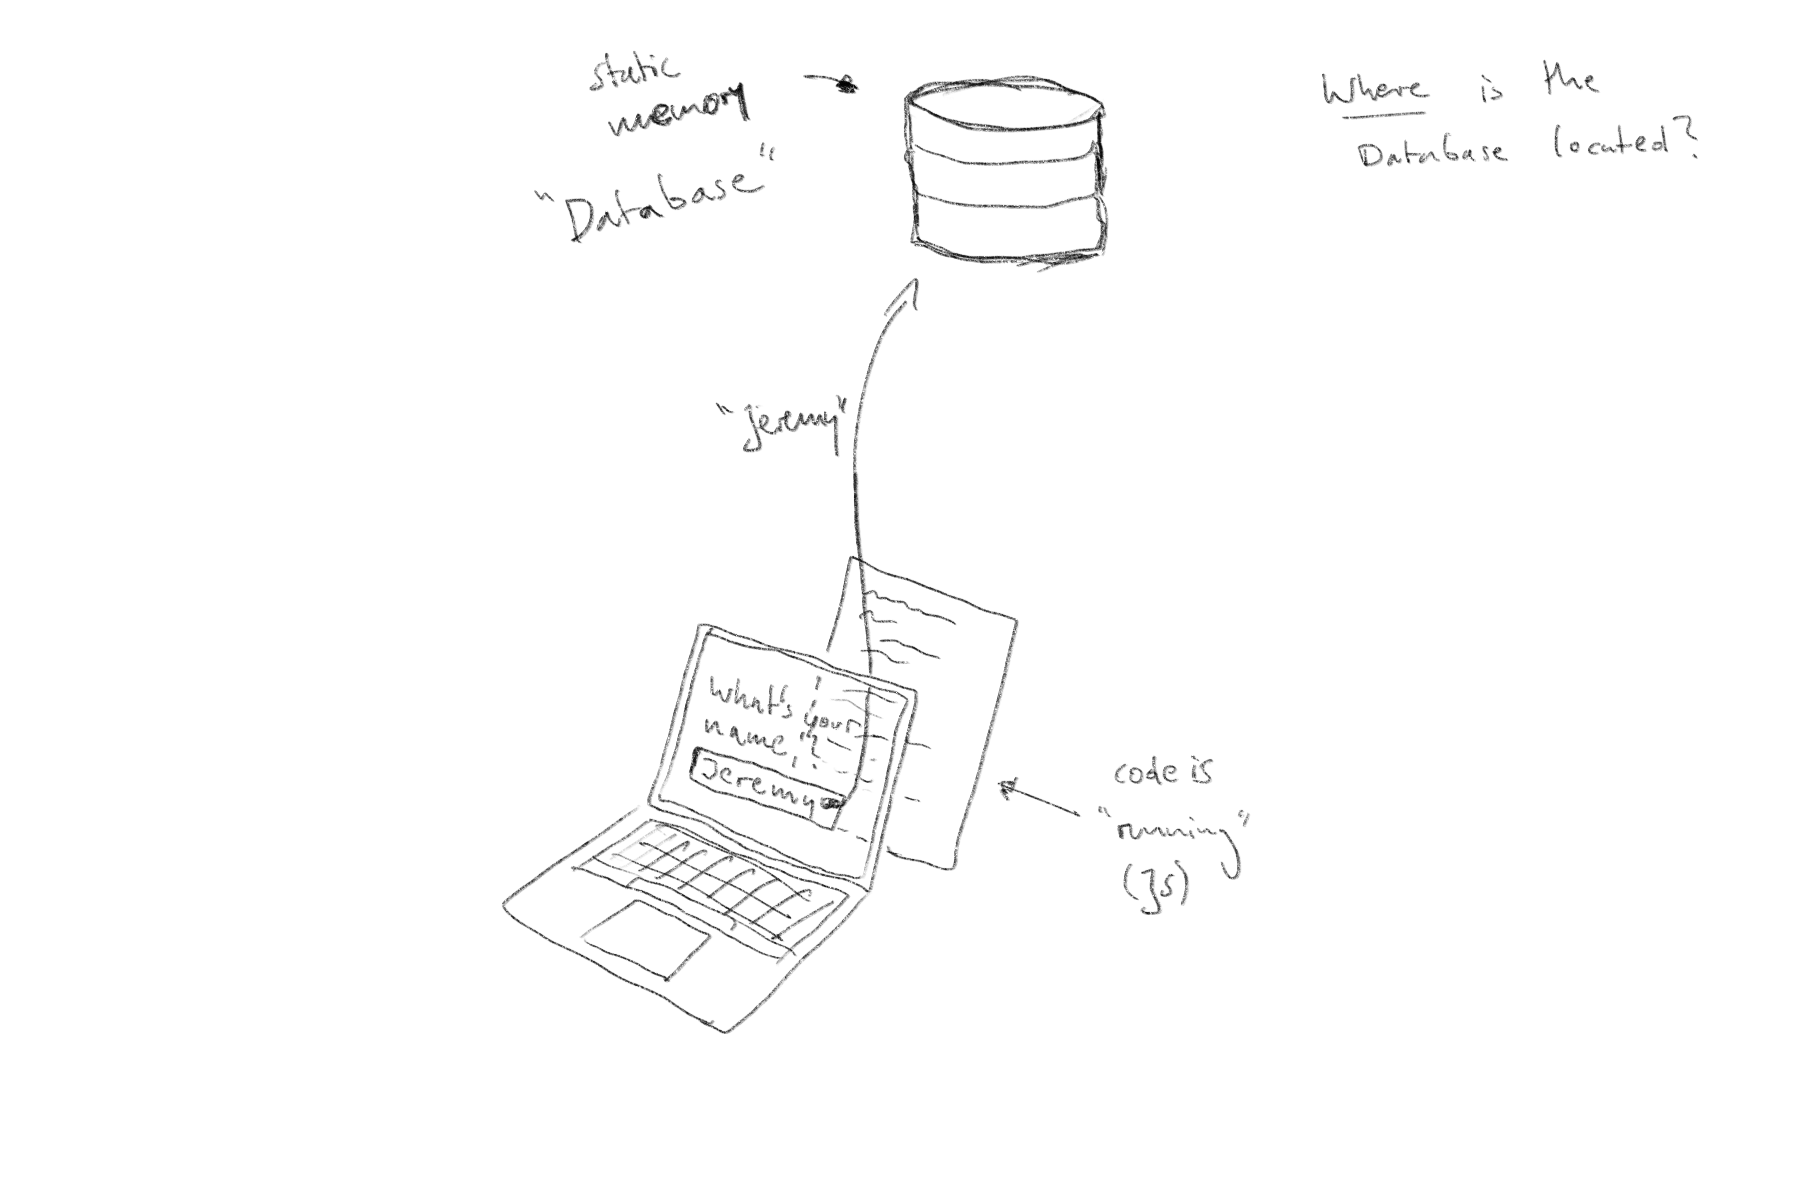 static
memory
"Database"
Where is the
Database located?
"Jeremy"
What's your
name?
Jeremy
code is
"running"
(JS)